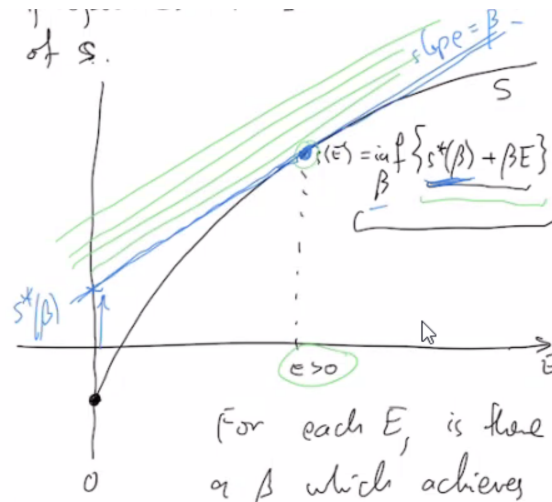 of S.
slope = β
S
s(E) = inf {s*(β) + βE}
β
s*(β)
e>0
E
0
For each E, is there
a β which achieves